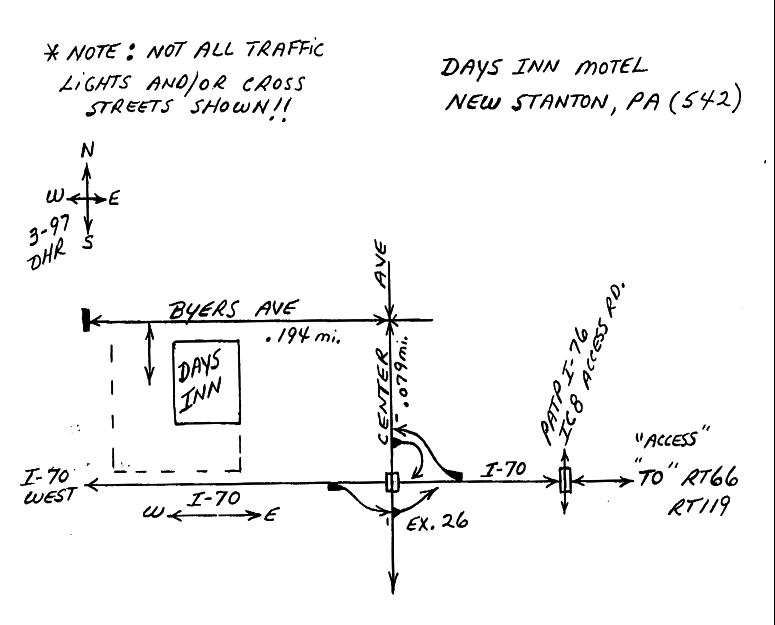 * NOTE: NOT ALL TRAFFIC
LIGHTS AND/OR CROSS
STREETS SHOWN!!
DAYS INN MOTEL
NEW STANTON, PA (542)
N
W E
S
3-97
DHR
AVE
BYERS AVE
.194 mi.
CENTER
.079 mi.
DAYS
INN
PATP I-76
IC8 ACCESS RD.
"ACCESS"
"TO" RT66
RT119
I-70
WEST
I-70
I-70
W E
EX. 26